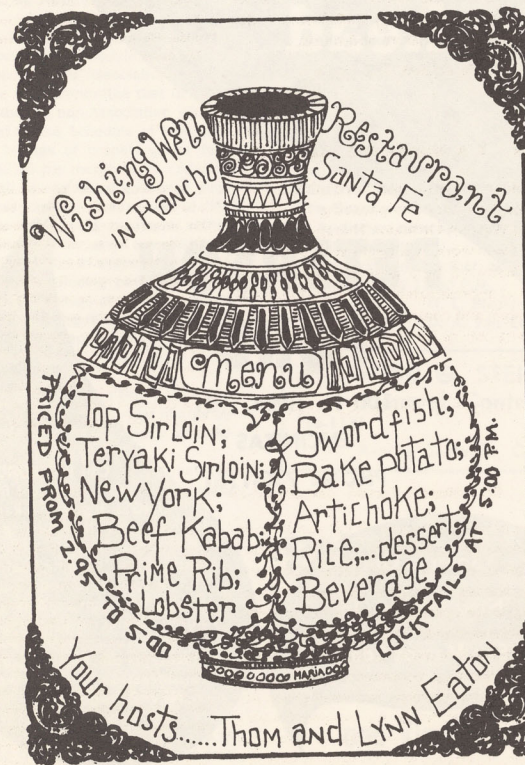 Wishing Well Restaurant
in Rancho Santa Fe
Menu
Top Sirloin;
Teryaki Sirloin;
New York;
Beef Kabab;
Prime Rib;
Lobster
Swordfish;
Bake Potato;
Artichoke;
Rice;...dessert
Beverage
PRICED FROM 2.95 TO 5.00
COCKTAILS AT 5:00 P.M.
MARIA
Your hosts......Thom and Lynn Eaton